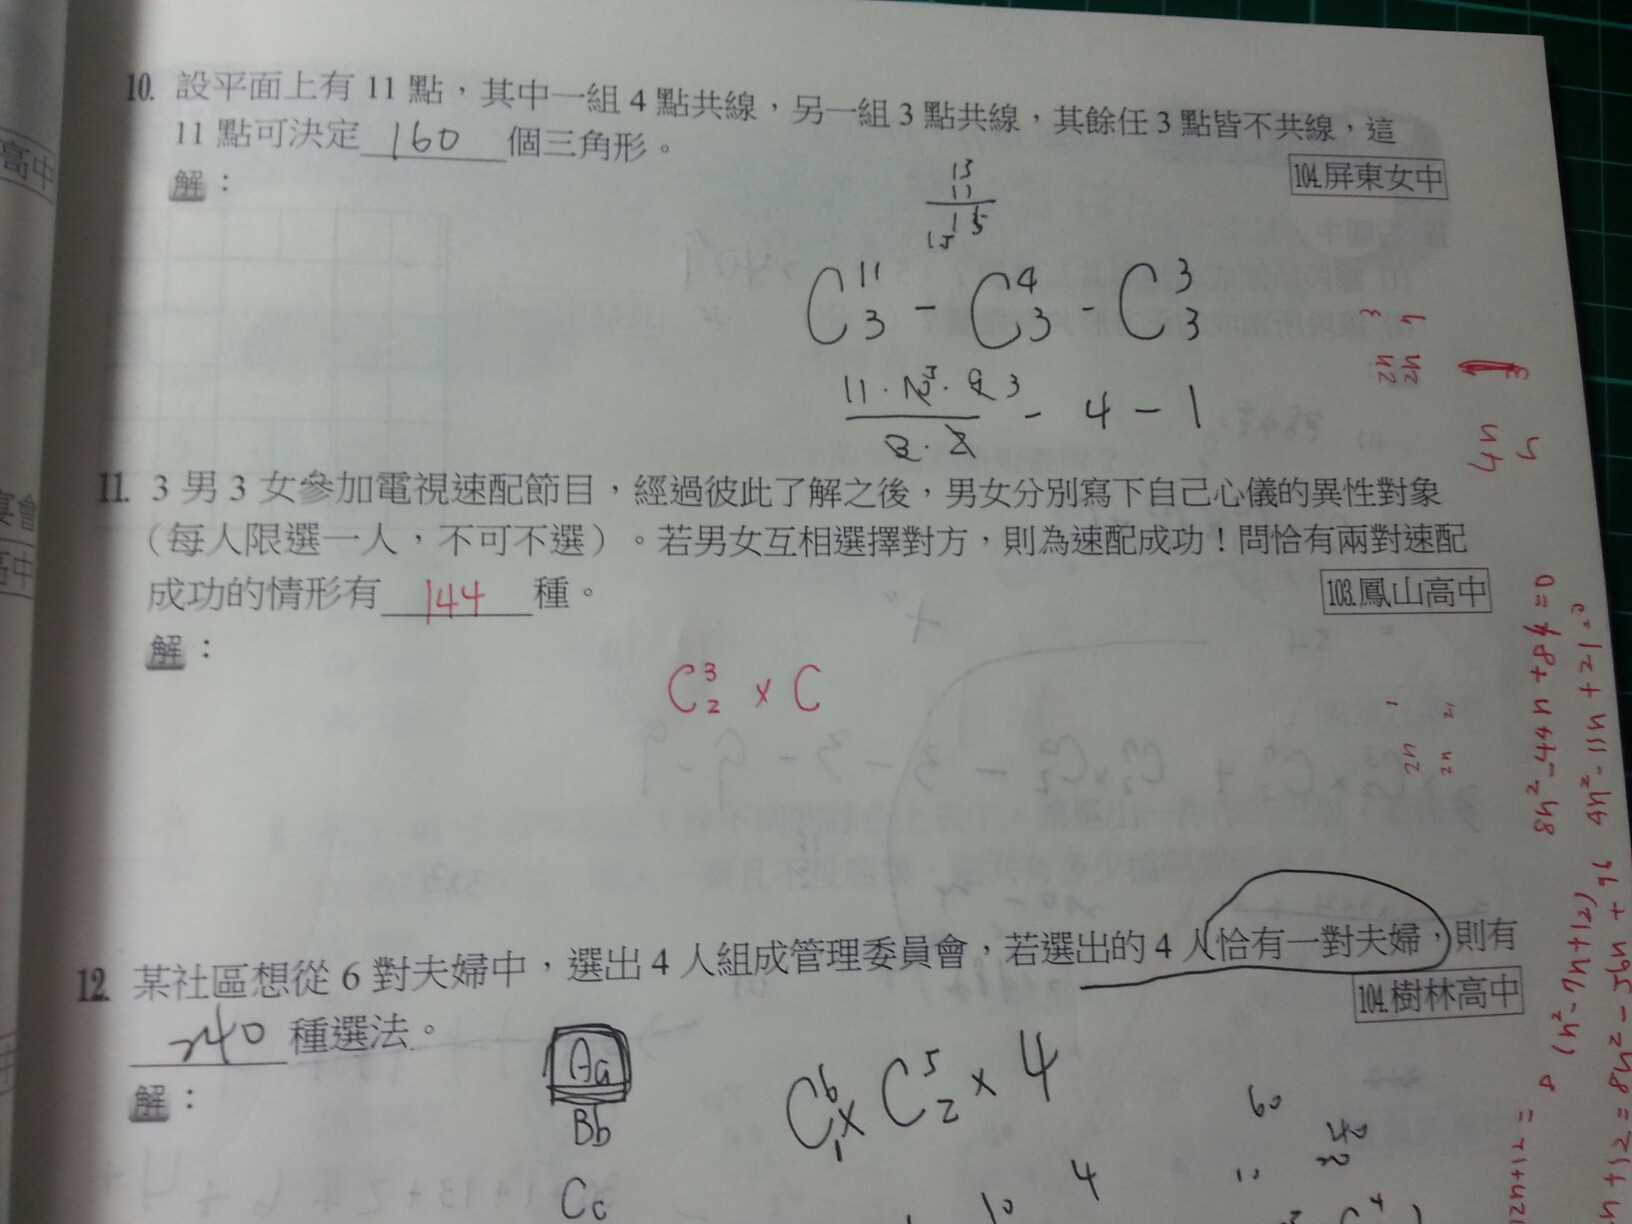 10. 設平面上有 11 點，其中一組 4 點共線，另一組 3 點共線，其餘任 3 點皆不共線，這
11 點可決定 160 個三角形。
104.屏東女中
解：
13
11
15
15
C 11 3 - C 4 3 - C 3 3
- 4 - 1
11. 3 男 3 女參加電視速配節目，經過彼此了解之後，男女分別寫下自己心儀的異性對象
（每人限選一人，不可不選）。若男女互相選擇對方，則為速配成功！問恰有兩對速配
成功的情形有 144 種。
103.鳳山高中
解：
C 3 2 x C
12. 某社區想從 6 對夫婦中，選出 4 人組成管理委員會，若選出的 4 人恰有一對夫婦，則有
240 種選法。
104.樹林高中
解：
Aa
Bb
Cc
C 6 1 x C 5 2 x 4
60
4
10
高中
宴會
高中
4n
8n²-44n+84=0
4n²-11n+21=0
(n²-7n+12)
2n+12=
n+12=8n²-56n+96